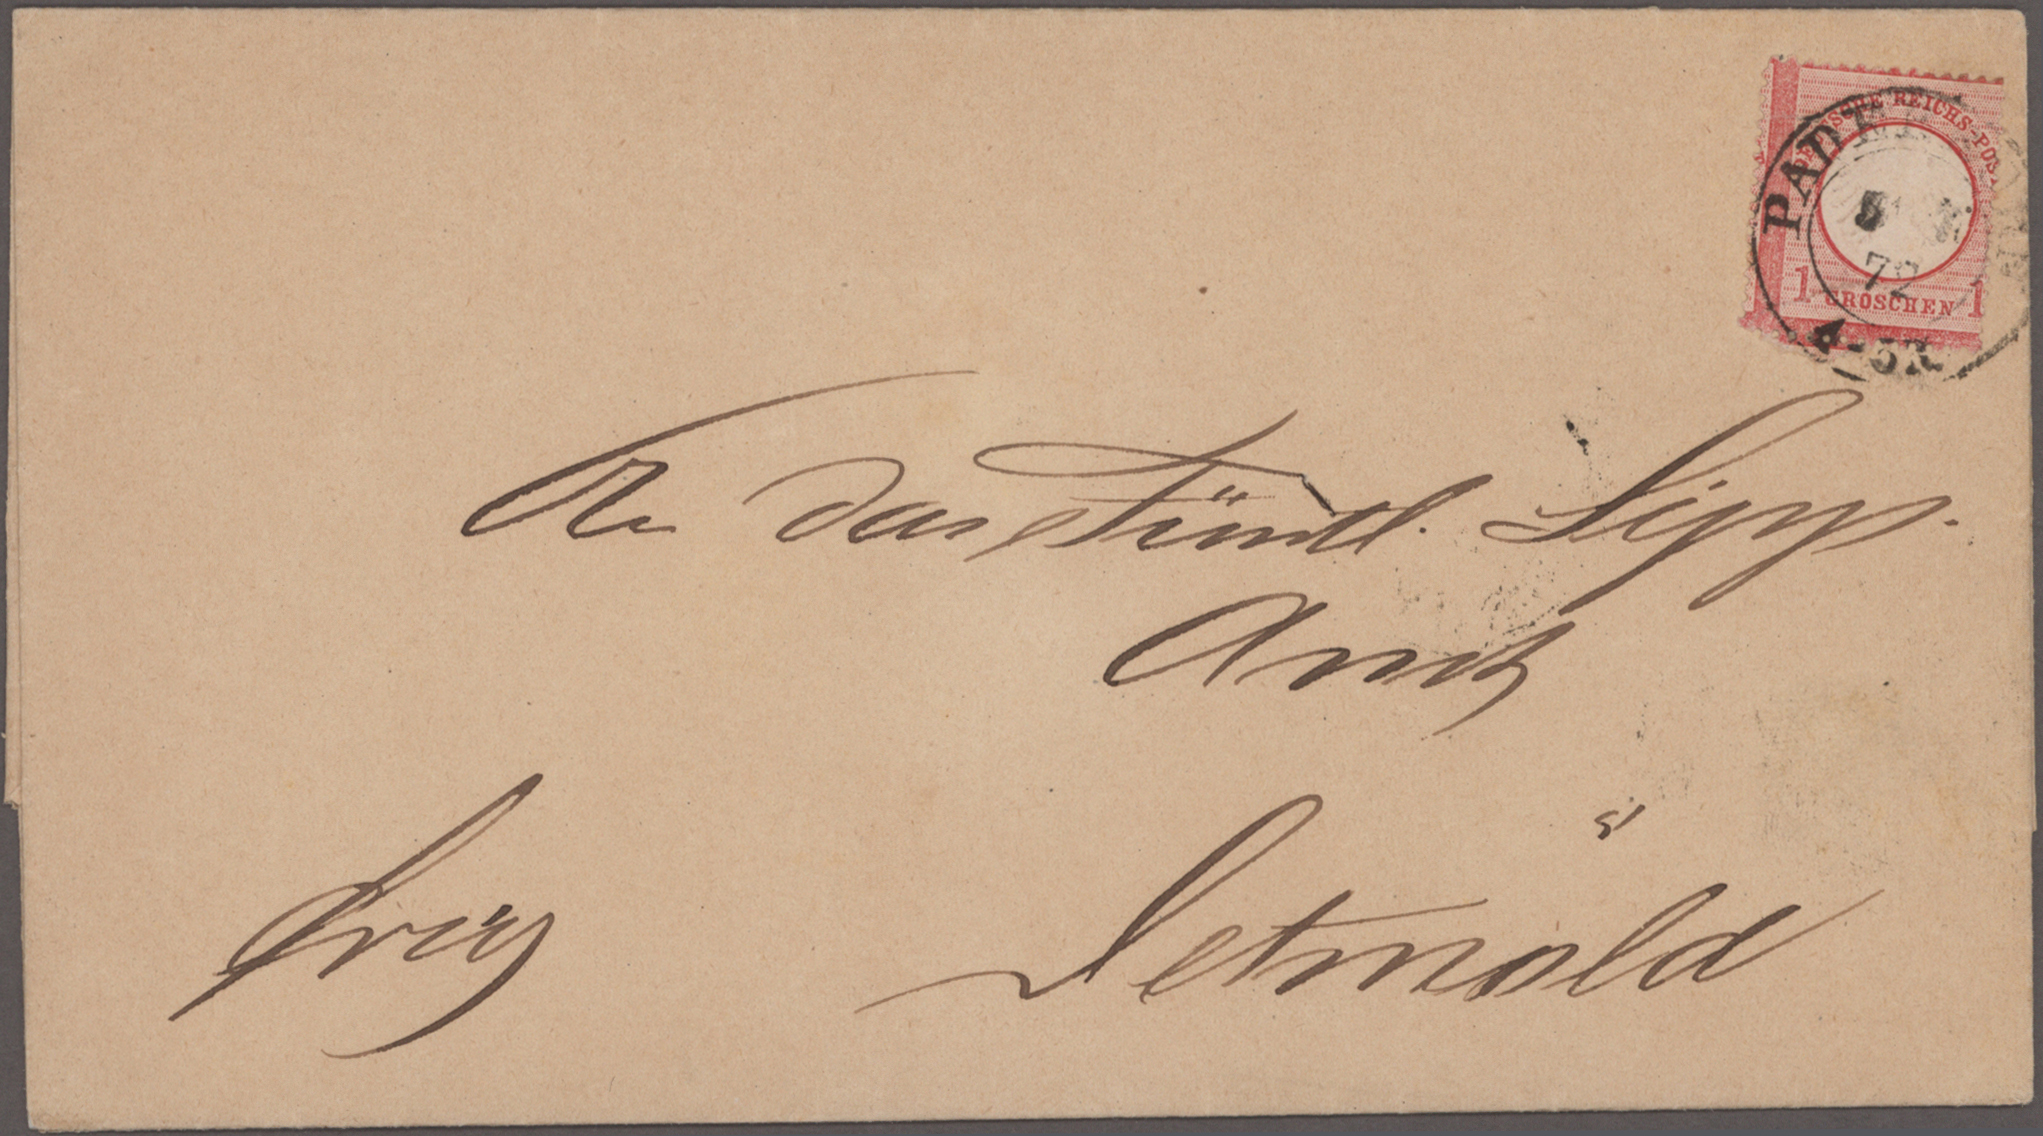 DEUTSCHE REICHS-POST
72
1 GROSCHEN 1
An das Fürstl. Lipp.
Amt
frei
Detmold